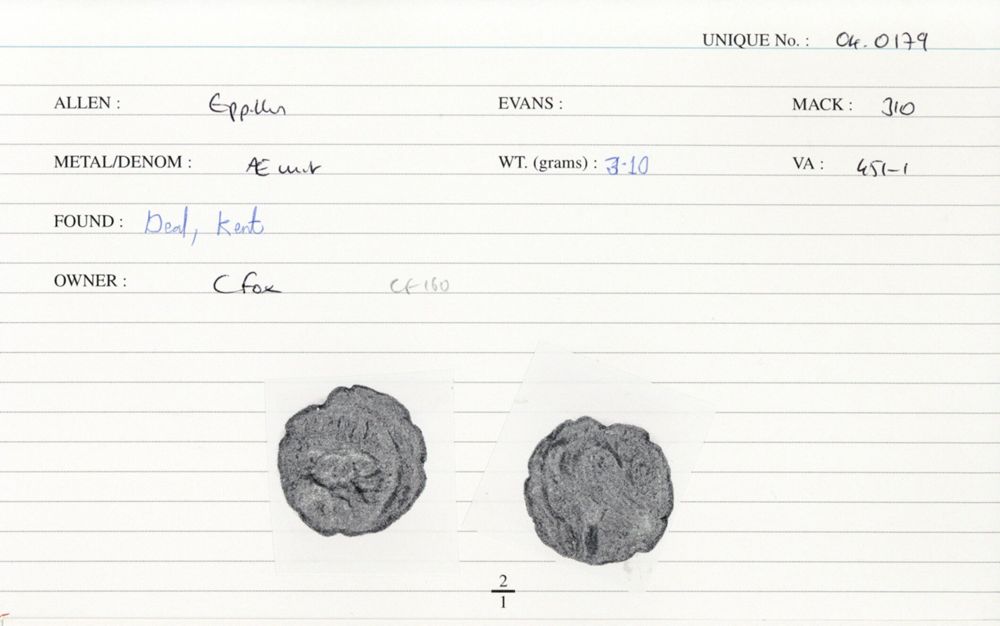 UNIQUE No. : 04.0179
ALLEN : Eppillus EVANS : MACK : 310
METAL/DENOM : Æ unit WT. (grams) : 3.10 VA : 451-1
FOUND : Deal, Kent
OWNER : C Fox CF160
2
1